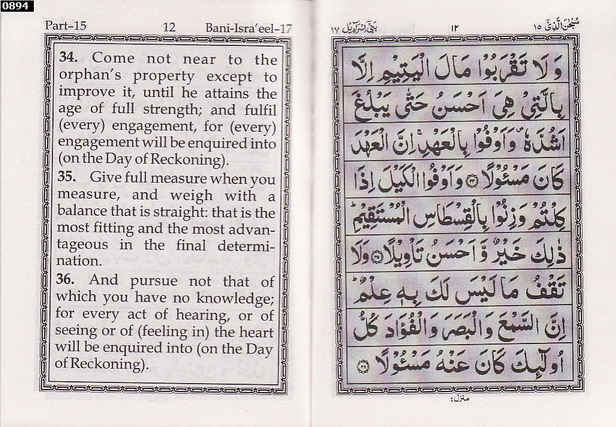 0894
Part-15 12 Bani-Isra'eel-17
34. Come not near to the
orphan's property except to
improve it, until he attains the
age of full strength; and fulfil
(every) engagement, for (every)
engagement will be enquired into
(on the Day of Reckoning).
35. Give full measure when you
measure, and weigh with a
balance that is straight: that is the
most fitting and the most advan-
tageous in the final determi-
nation.
36. And pursue not that of
which you have no knowledge;
for every act of hearing, or of
seeing or of (feeling in) the heart
will be enquired into (on the Day
of Reckoning).
سُبْحٰنَ الَّذِیْۤ ١٥ ١٢ بَنِیْۤ اِسْرَآءِیْل ١٧
وَلَا تَقْرَبُوْا مَالَ الْیَتِیْمِ اِلَّا
بِالَّتِیْ هِیَ اَحْسَنُ حَتّٰی یَبْلُغَ
اَشُدَّهٗ وَاَوْفُوْا بِالْعَهْدِ اِنَّ الْعَهْدَ
كَانَ مَسْـُٔوْلًا ۝٣٤ وَاَوْفُوا الْكَیْلَ اِذَا
كِلْتُمْ وَزِنُوْا بِالْقِسْطَاسِ الْمُسْتَقِیْمِ
ذٰلِكَ خَیْرٌ وَّاَحْسَنُ تَاْوِیْلًا ۝٣٥ وَلَا
تَقْفُ مَا لَیْسَ لَكَ بِهٖ عِلْمٌ
اِنَّ السَّمْعَ وَالْبَصَرَ وَالْفُؤَادَ كُلُّ
اُولٰٓئِكَ كَانَ عَنْهُ مَسْـُٔوْلًا ۝٣٦
منزل ٤